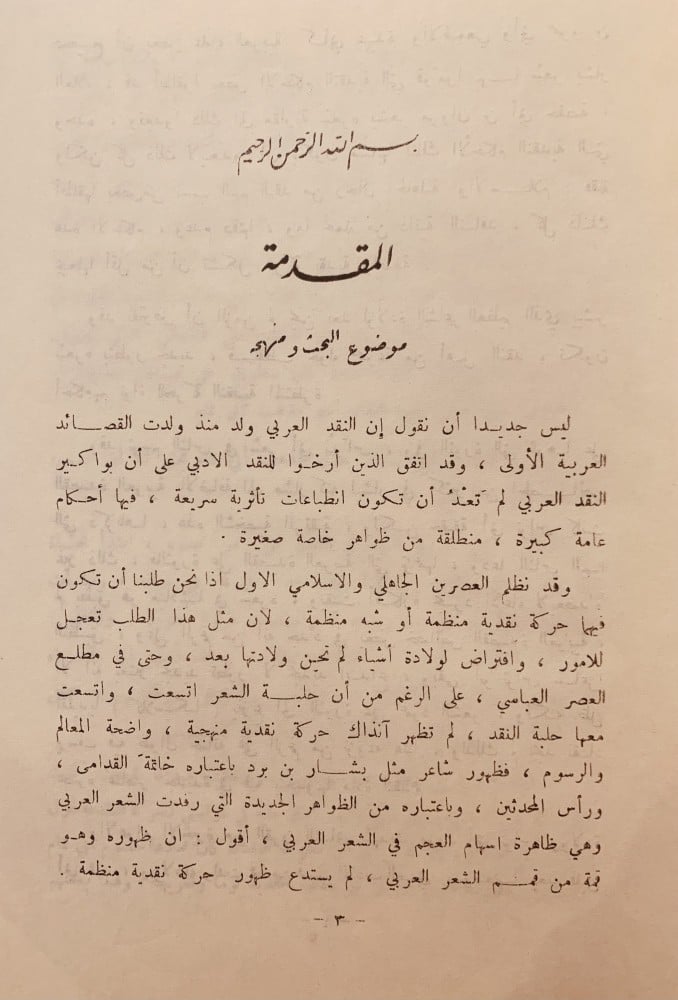 بسم الله الرحمن الرحيم
المقدمة
موضوع البحث ومنهجه
ليس جديدا أن نقول إن النقد العربي ولد منذ ولدت القصائد
العربية الأولى ، وقد اتفق الذين أرخوا للنقد الادبي على أن بواكير
النقد العربي لم تَعْدُ أن تكون انطباعات تأثرية سريعة ، فيها أحكام
عامة كبيرة ، منطلقة من ظواهر خاصة صغيرة .
وقد نظلم العصرين الجاهلي والاسلامي الاول اذا نحن طلبنا أن تكون
فيها حركة نقدية منظمة أو شبه منظمة ، لان مثل هذا الطلب تعجل
للامور ، وافتراض لولادة أشياء لم تحين ولادتها بعد ، وحتى في مطلع
العصر العباسي ، على الرغم من أن حلبة الشعر اتسعت ، واتسعت
معها حلبة النقد ، لم تظهر آنذاك حركة نقدية منهجية ، واضحة المعالم
والرسوم ، فظهور شاعر مثل بشار بن برد باعتباره خاتمةَ القدامى ،
ورأس المحدثين ، وباعتباره من الظواهر الجديدة التي رفدت الشعر العربي
وهي ظاهرة اسهام العجم في الشعر العربي ، أقول : ان ظهوره وهو
قمة من قمم الشعر العربي ، لم يستدع ظهور حركة نقدية منظمة .
- ٣ -